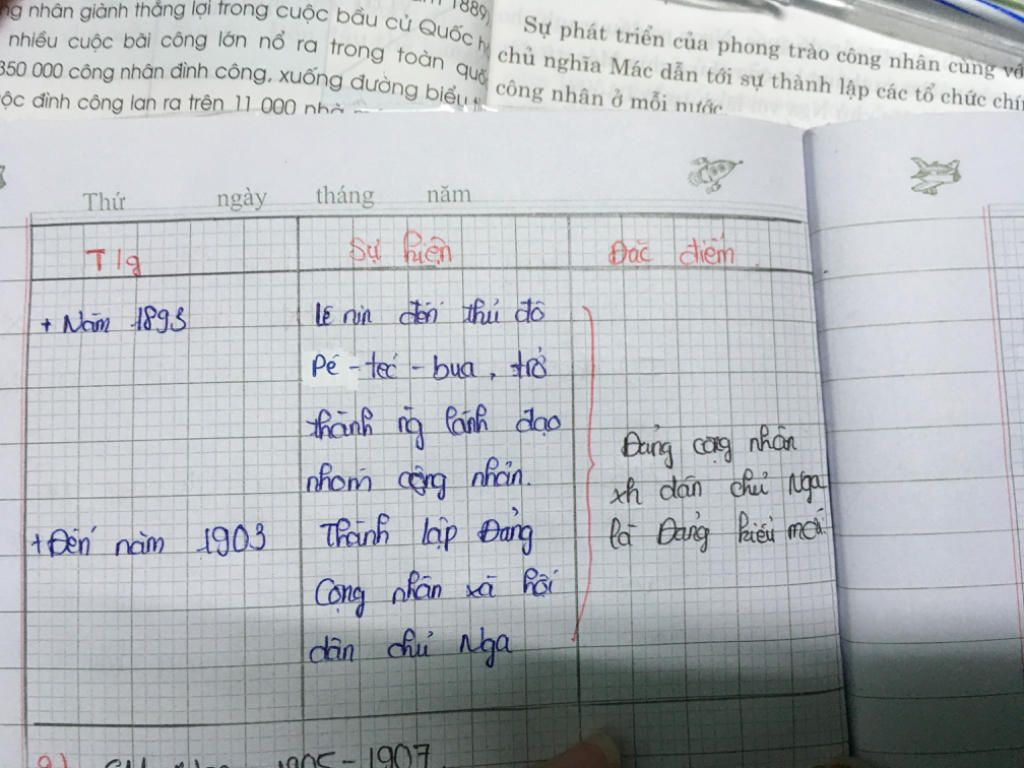 1889)
ng nhân giành thắng lợi trong cuộc bầu cử Quốc h
nhiều cuộc bãi công lớn nổ ra trong toàn quố
350 000 công nhân đình công, xuống đường biểu
ộc đình công lan ra trên 11 000 nhà
Sự phát triển của phong trào công nhân cùng vớ
chủ nghĩa Mác dẫn tới sự thành lập các tổ chức chín
công nhân ở mỗi nước.
Thứ ngày tháng năm
T/g Sự kiện Đặc điểm
+ Năm 1893 Lê nin đến thủ đô
Pê-téc-bua, trở
thành ng lãnh đạo
nhóm công nhân.
Đảng công nhân
xh dân chủ Nga
là Đảng kiểu mới
+ Đến năm 1903 Thành lập Đảng
Công nhân xã hội
dân chủ Nga
1905-1907